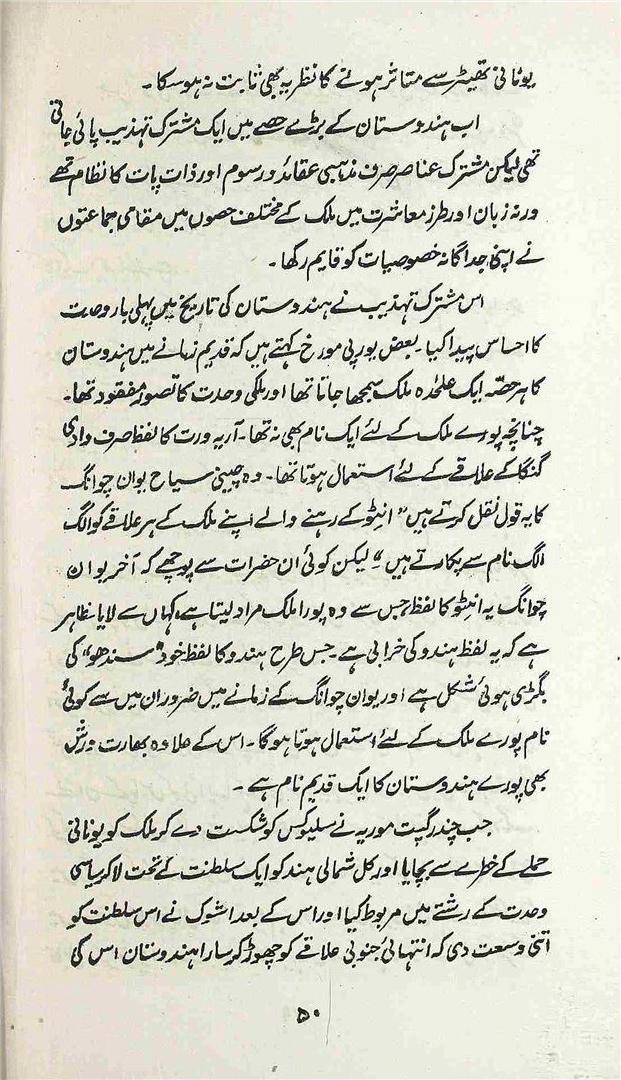 یونانی تھیٹر سے متاثر ہونے کا نظریہ بھی ثابت نہ ہوسکا۔
اب ہندوستان کے بڑے حصے میں ایک مشترک تہذیب پائی جاتی
تھی لیکن مشترک عناصر صرف مذہبی عقائد و رسوم اور ذات پات کا نظام تھے
ورنہ زبان اور طرز معاشرت میں ملک کے مختلف حصوں میں مقامی جماعتوں
نے اپنی جداگانہ خصوصیات کو قایم رکھا۔
اس مشترک تہذیب نے ہندوستان کی تاریخ میں پہلی بار وحدت
کا احساس پیدا کیا۔ بعض یورپی مورخ کہتے ہیں کہ قدیم زمانے میں ہندوستان
کا ہر حصّہ ایک علٰحدہ ملک سمجھا جاتا تھا اور ملکی وحدت کا تصور مفقود تھا۔
چنانچہ پورے ملک کے لئے ایک نام بھی نہ تھا۔ آریہ ورت کا لفظ صرف وادی
گنگا کے علاقے کے لئے استعمال ہوتا تھا۔ وہ چینی سیاح یوان چوانگ
کا یہ قول نقل کرتے ہیں "انیٹو کے رہنے والے اپنے ملک کے ہر علاقے کو الگ
الگ نام سے پکارتے ہیں" لیکن کوئی ان حضرات سے پوچھے کہ آخر یوان
چوانگ یہ انیٹو کا لفظ جس سے وہ پورا ملک مراد لیتا ہے، کہاں سے لایا۔ ظاہر
ہے کہ یہ لفظ ہندو کی خرابی ہے۔ جس طرح ہندو کا لفظ خود "سندھو" کی
بگڑی ہوئی شکل ہے اور یوان چوانگ کے زمانے میں ضرور ان میں سے کوئی
نام پورے ملک کے لئے استعمال ہوتا ہوگا۔ اس کے علاوہ بھارت ورش
بھی پورے ہندوستان کا ایک قدیم نام ہے۔
جب چندر گپت موریہ نے سلیوکس کو شکست دے کر ملک کو یونانی
حملے کے خطرے سے بچایا اور کل شمالی ہند کو ایک سلطنت کے تحت لا کر سیاسی
وحدت کے رشتے میں مربوط کیا اور اس کے بعد اشوک نے اس سلطنت کو
اتنی وسعت دی کہ انتہائی جنوبی علاقے کو چھوڑ کر سارا ہندوستان اس کی
۵۰